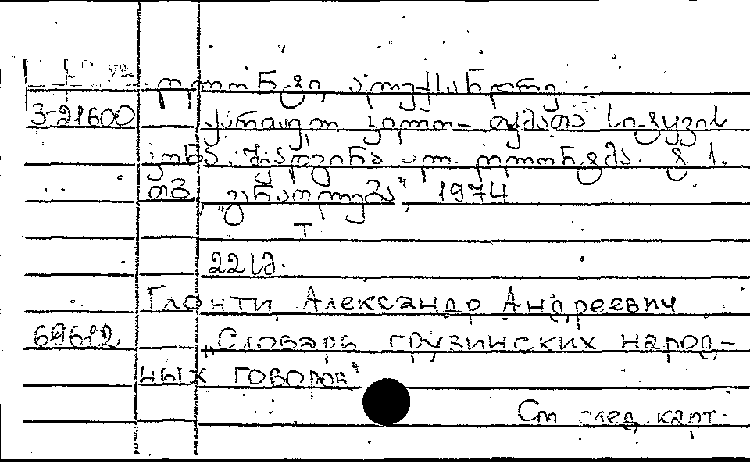 ღლონტი, ალექსანდრე
3-21600 ქართულ კილო-თქმათა სიტყვის
კონა. შეადგინა ალ. ღლონტმა. ტ. 1.
თბ. „განათლება“, 1974
T
22 სმ.
Глонти, Александр Андреевич
69612 „Словарь грузинских народ-
ных говоров“
См след. карт.